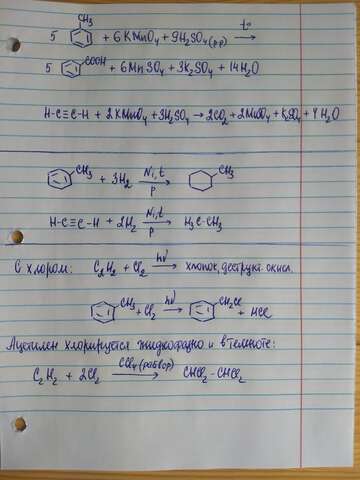 CH₃
5 + 6KMnO₄ + 9H₂SO₄(р-р) t° →
COOH
5 + 6MnSO₄ + 3K₂SO₄ + 14H₂O
H-C≡C-H + 2KMnO₄ + 3H₂SO₄ → 2CO₂ + 2MnSO₄ + K₂SO₄ + 4H₂O
CH₃ + 3H₂ Ni, t → p CH₃
H-C≡C-H + 2H₂ Ni, t → p H₃C-CH₃
С хлором: C₂H₂ + Cl₂ hν → хлопок, деструкт. окисл.
CH₃ + Cl₂ hν → CH₂Cl + HCl
Ацетилен хлорируется жидкофазно и в темноте:
C₂H₂ + 2Cl₂ CCl₄ (раствор) → CHCl₂-CHCl₂